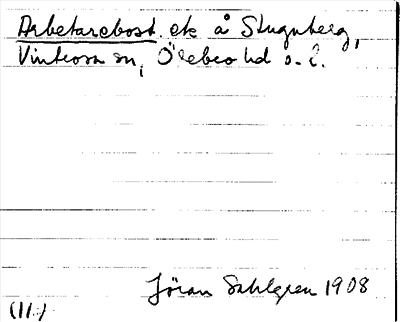 Arbetarebost. etc å Stugnberg,
Vintrosa sn, Örebro hd o. l.
Jöran Sahlgren 1908
(11)